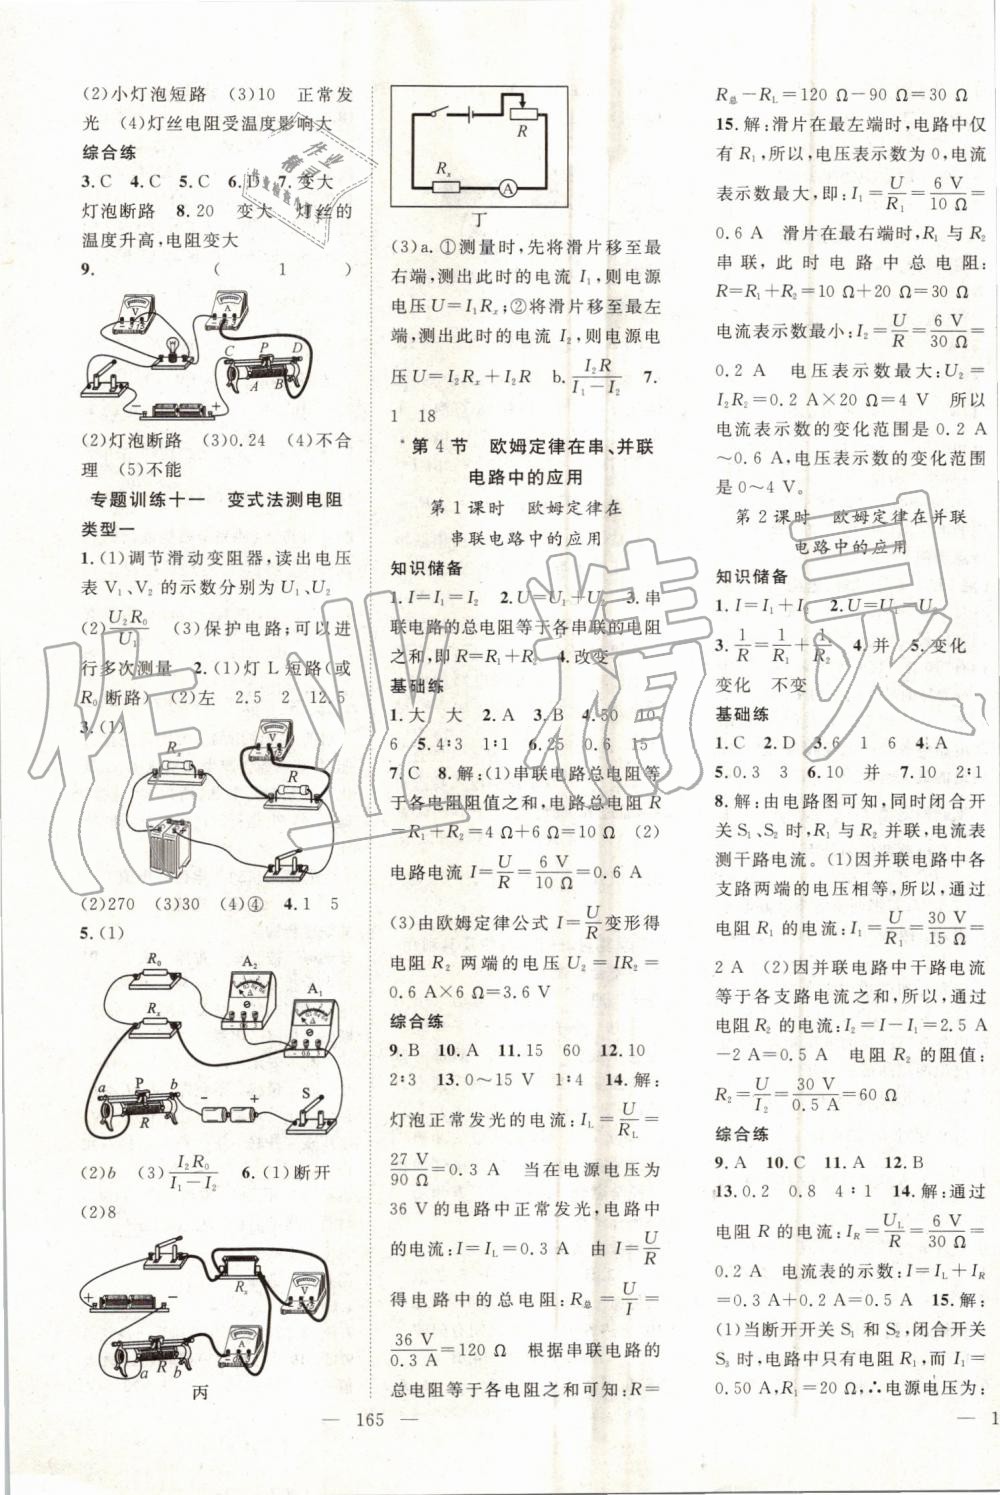 (2)小灯泡短路 (3)10 正常发
光 (4)灯丝电阻受温度影响大
综合练
3.C 4.C 5.C 6.D 7.变大
灯泡断路 8.20 变大 灯丝的
温度升高,电阻变大
9. ( 1 )
V A
C P D
A B
－ ＋
(2)灯泡断路 (3)0.24 (4)不合
理 (5)不能
专题训练十一 变式法测电阻
类型一
1.(1)调节滑动变阻器,读出电压
表 V₁、V₂ 的示数分别为 U₁、U₂
(2)U₂R₀/U₁ (3)保护电路;可以进
行多次测量 2.(1)灯 L 短路(或
R₀断路) (2)左 2.5 12.5
3.(1)
Rₓ V
R
(2)270 (3)30 (4)④ 4.1 5
5.(1)
R₀ A₂
A₁
Rₓ
a P b － ＋ S
R
(2)b (3)I₂R₀/(I₁－I₂) 6.(1)断开
(2)8
Rₓ
＋ － V
A
a b
丙
R
Rₓ A
丁
(3)a.①测量时,先将滑片移至最
右端,测出此时的电流 I₁,则电源
电压U=I₁Rₓ;②将滑片移至最左
端,测出此时的电流 I₂,则电源电
压U=I₂Rₓ+I₂R b.I₂R/(I₁－I₂) 7.
1 18
第 4 节 欧姆定律在串、并联
电路中的应用
第 1 课时 欧姆定律在
串联电路中的应用
知识储备
1.I=I₁=I₂ 2.U=U₁+U₂ 3.串
联电路的总电阻等于各串联的电阻
之和,即 R=R₁+R₂ 4.改变
基础练
1.大 大 2.A 3.B 4.50 10
6 5.4∶3 1∶1 6.25 0.6 15
7.C 8.解:(1)串联电路总电阻等
于各电阻阻值之和,总电阻 R
=R₁+R₂=4 Ω+6 Ω=10 Ω (2)
电路电流 I=U/R=6 V/10 Ω=0.6 A
(3)由欧姆定律公式 I=U/R变形得
电阻 R₂ 两端的电压 U₂=IR₂=
0.6 A×6 Ω=3.6 V
综合练
9.B 10.A 11.15 60 12.10
2∶3 13.0～15 V 1∶4 14.解:
灯泡正常发光的电流:I_L=U/R_L=
27 V/90 Ω=0.3 A 当在电源电压为
36 V 的电路中正常发光,电路中
的电流:I=I_L=0.3 A 由 I=U/R
得电路中的总电阻:R总=U/I=
36 V/0.3 A=120 Ω 根据串联电路的
总电阻等于各电阻之和可知:R=
— 165 —
R总－R_L=120 Ω－90 Ω=30 Ω
15.解:滑片在最左端时,电路中仅
有 R₁,所以,电压表示数为 0,电流
表示数最大,即:I₁=U/R₁=6 V/10 Ω=
0.6 A 滑片在最右端时,R₁ 与 R₂
串联,此时电路中总电阻:
R=R₁+R₂=10 Ω+20 Ω=30 Ω
电流表示数最小:I₂=U/R=6 V/30 Ω=
0.2 A 电压表示数最大:U₂=
I₂R₂=0.2 A×20 Ω=4 V 所以
电流表示数的变化范围是 0.2 A
～0.6 A, 电压表示数的变化范围
是 0～4 V。
第 2 课时 欧姆定律在并联
电路中的应用
知识储备
1.I=I₁+I₂ 2.U=U₁=U₂
3.1/R=1/R₁+1/R₂ 4.并 5.变化
变化 不变
基础练
1.C 2.D 3.6 1 6 4.A
5.0.3 3 6.10 并 7.10 2∶1
8.解:由电路图可知,同时闭合开
关 S₁、S₂ 时,R₁ 与 R₂ 并联,电流表
测干路电流。(1)因并联电路中各
支路两端的电压相等,所以,通过
电阻 R₁ 的电流:I₁=U/R₁=30 V/15 Ω=
2 A (2)因并联电路中干路电流
等于各支路电流之和,所以,通过
电阻 R₂ 的电流:I₂=I－I₁=2.5 A
－2 A=0.5 A 电阻 R₂ 的阻值:
R₂=U/I₂=30 V/0.5 A=60 Ω
综合练
9.A 10.C 11.A 12.B
13.0.2 0.8 4∶1 14.解:通过
电阻 R 的电流:I_R=U_L/R=6 V/30 Ω=
0.2 A 电流表的示数:I=I_L+I_R
=0.3 A+0.2 A=0.5 A 15.解:
(1)当断开开关 S₁ 和 S₂,闭合开关
S₃ 时,电路中只有电阻 R₁,而 I₁=
0.50 A,R₁=20 Ω,∴电源电压为:
— 1
作业精灵